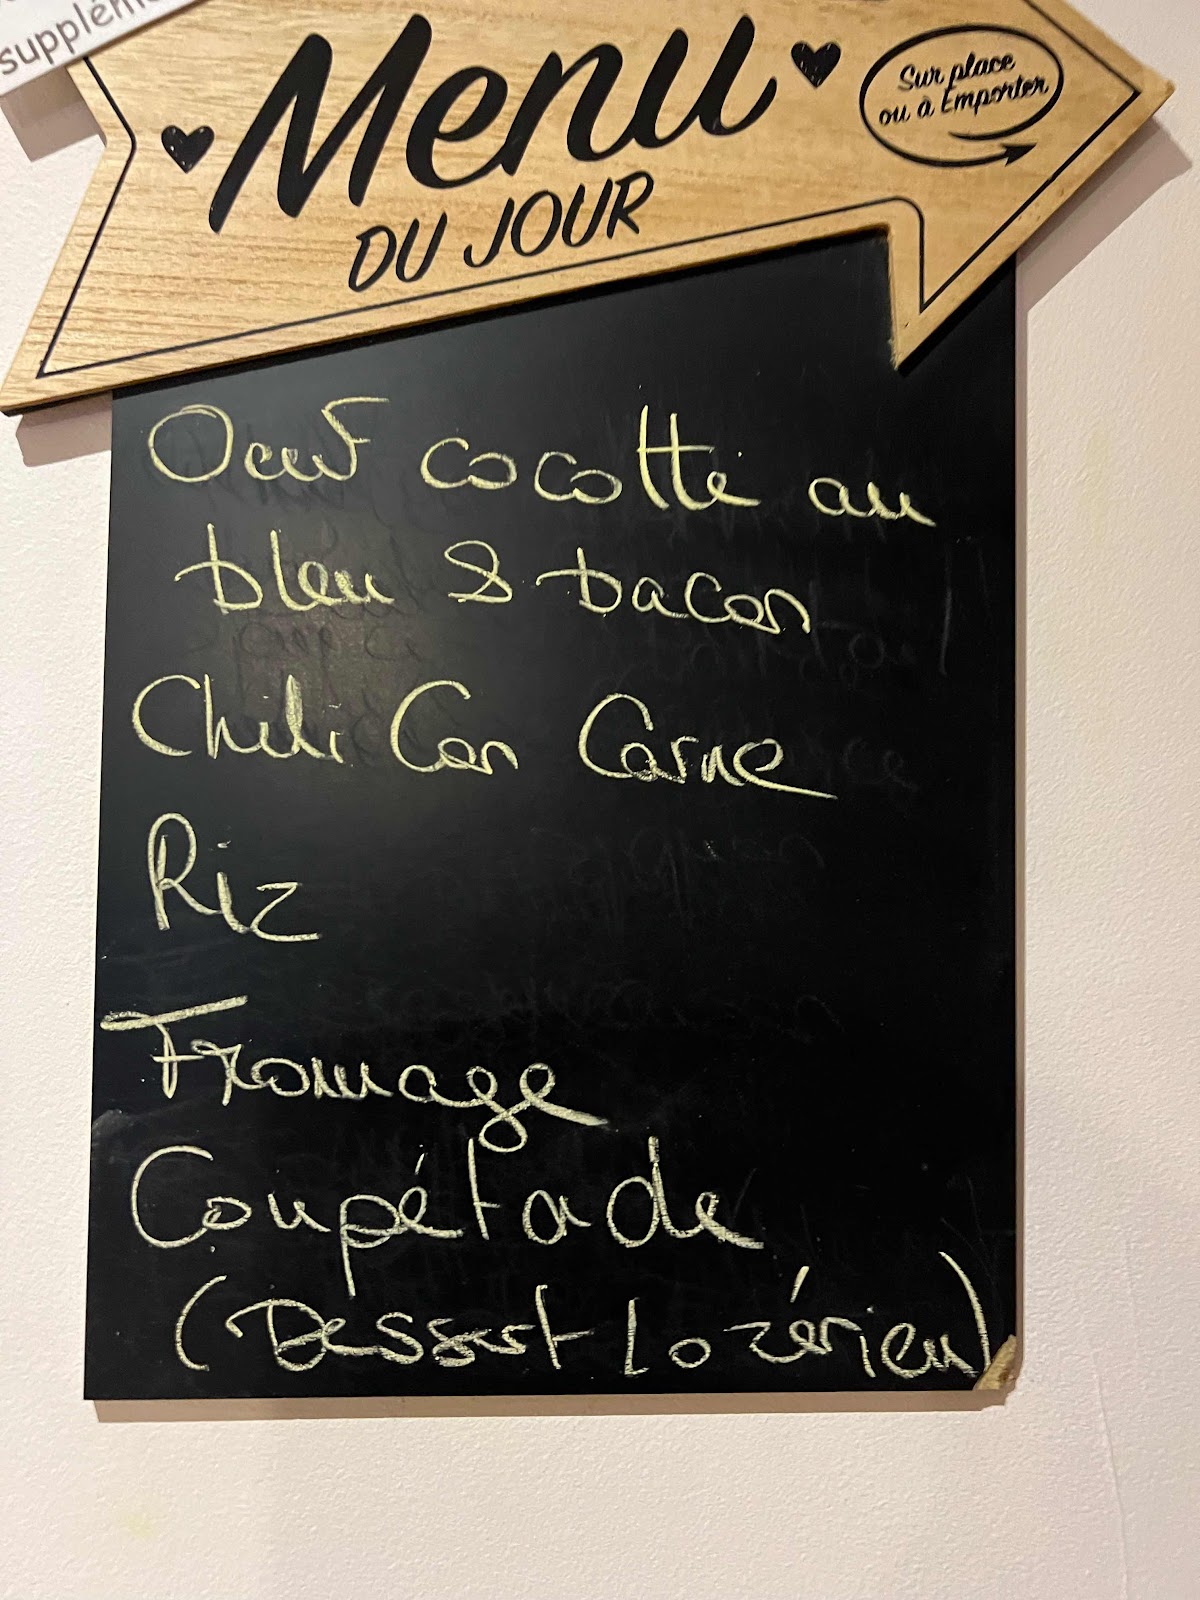 Menu
DU JOUR
Sur place
ou à Emporter
Oeuf cocotte au
bleu & bacon
Chili Con Carne
Riz
Fromage
Coupétade
(Dessert Lozérien)